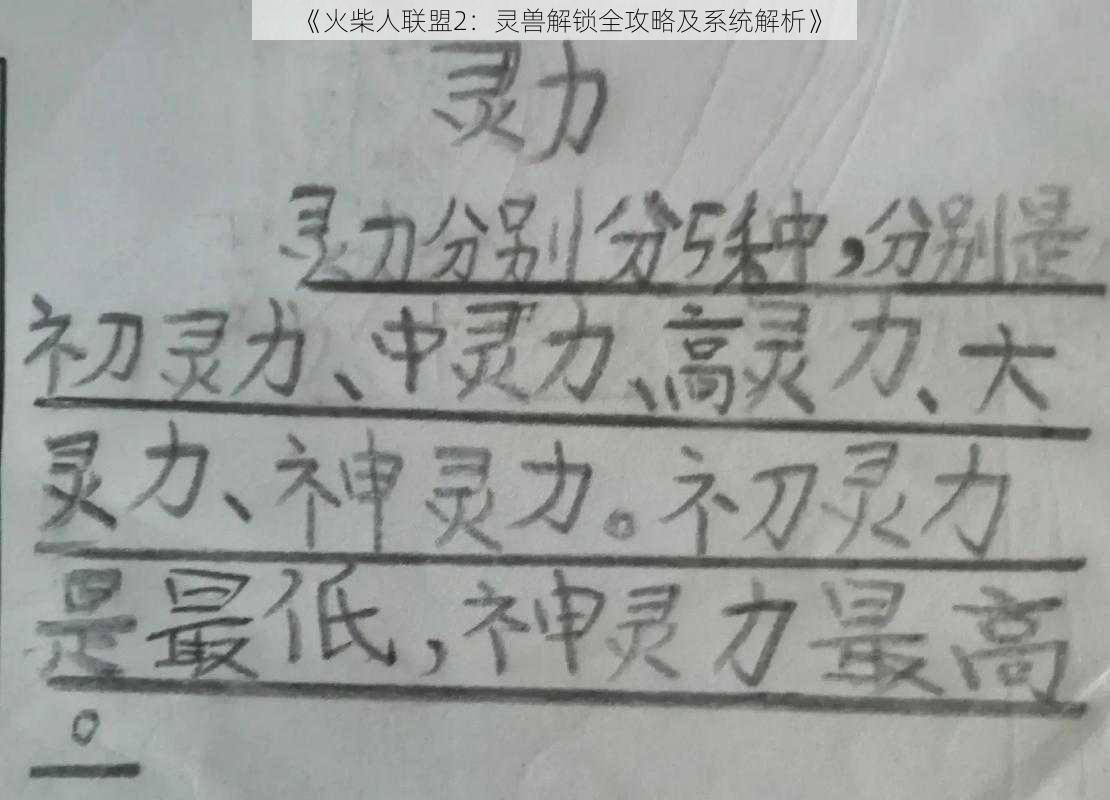 《火柴人联盟2：灵兽解锁全攻略及系统解析》
灵力
灵力分别分5种，分别是
初灵力、中灵力、高灵力、大
灵力、神灵力。初灵力
是最低，神灵力最高
。